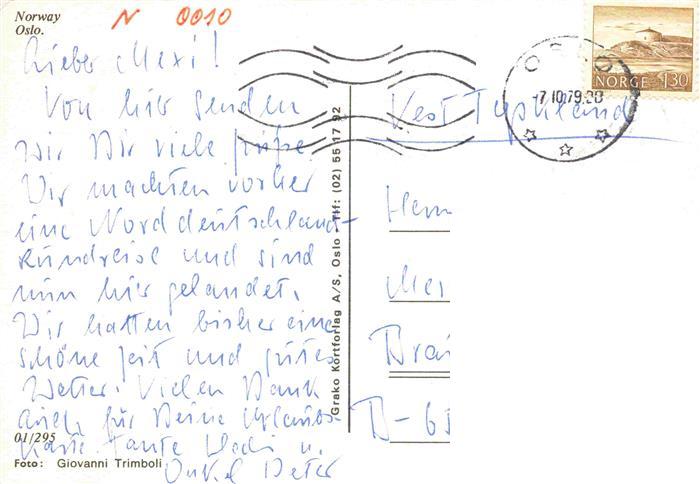 Norway
Oslo.
N 0010
Lieber Mexi!
Von hier senden
wir Dir viele Grüße
Wir machten vorher
eine Norddeutschland-
rundreise und sind
nun hier gelandet.
Wir hatten bisher eine
schöne Zeit und gutes
Wetter. Vielen Dank
auch für Deine Urlaubs-
karte. Tante u.
Onkel Peter
01/295
Foto: Giovanni Trimboli
Grako Kortforlag A/S, Oslo - Tlf: (02) 55 17 92
OSLO
-7.10.79
NORGE 130
Vest Tyskland
Herrn
D-65